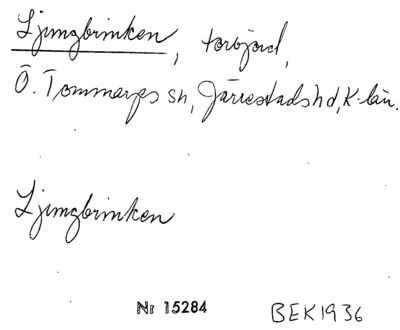 Ljungbrinken, torvjord,
Ö. Tommarps sn, Järrestads hd, K-län.
Ljungbrinken
Nr 15284
BEK1936